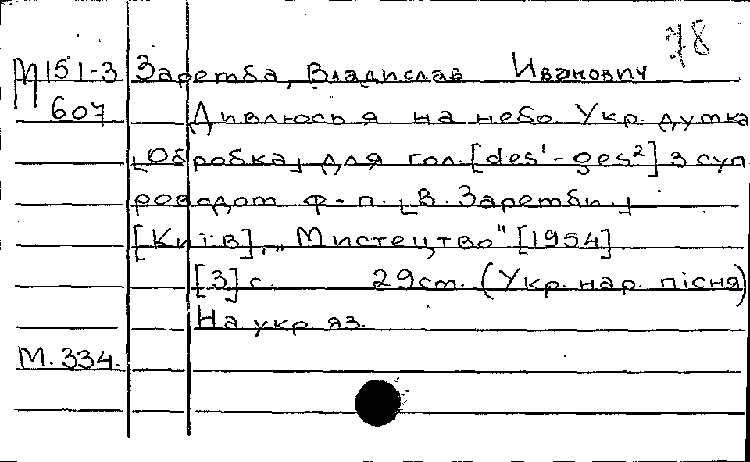 78
М151-3 Заремба, Владислав Иванович
607 Дивлюсь я на небо. Укр. думка
[Обробка] для гол. [des¹-ges²] з суп
роводом ф-п. [В. Заремби.]
[Київ], „Мистецтво" [1954]
[3] с. 29 cm. (Укр. нар. пісня)
На укр яз.
М. 334.